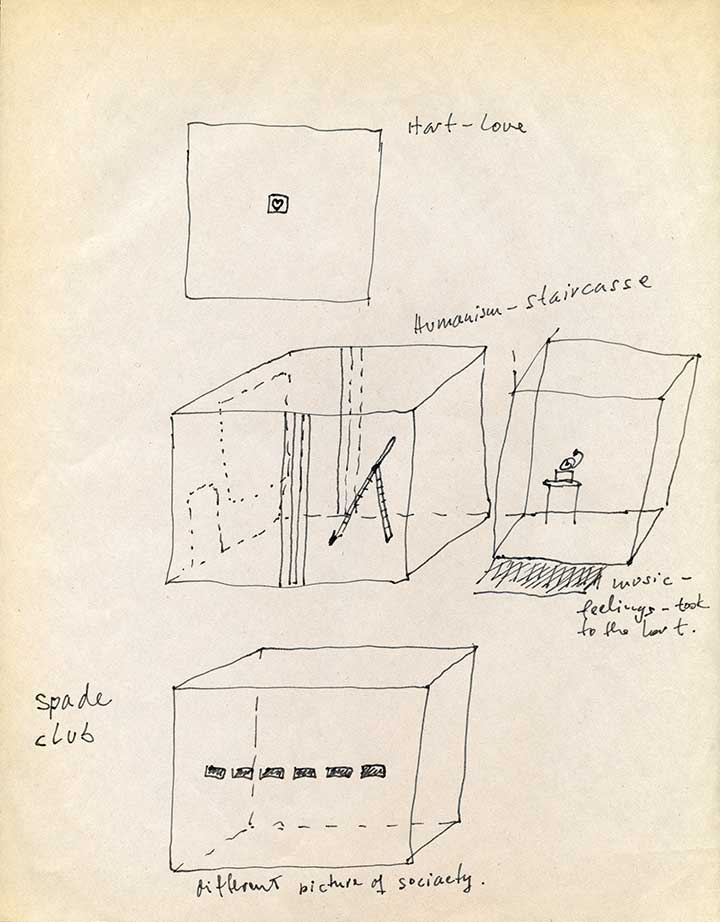 Hart - Love
Humanism - staircasse
music -
feelings - took
to the hart.
spade
club
different picture of sociaety.